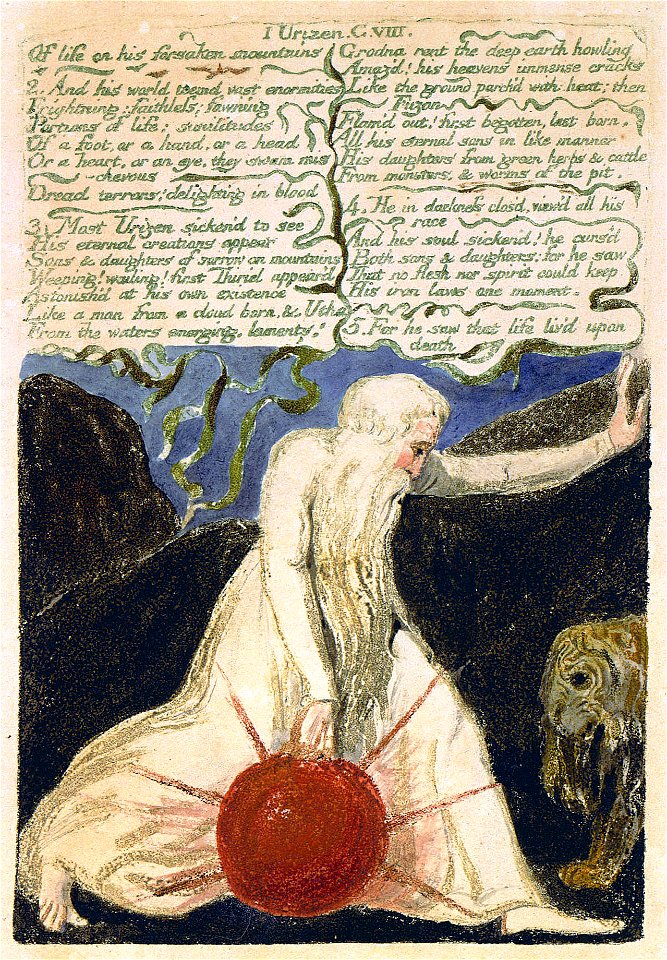 I Urizen. C. VIII.
Of life on his forsaken mountains
2. And his world teemd vast enormities
Frightning; faithless; fawning
Portions of life; similitudes
Of a foot, or a hand, or a head
Or a heart, or an eye, they swam mis
-chevous
Dread terrors; delighting in blood
3. Most Urizen sicken'd to see
His eternal creations appear
Sons & daughters of sorrow on mountains
Weeping! wailing! first Thiriel appear'd
Astonish'd at his own existence
Like a man from a cloud born, & Utha
From the waters emerging, laments!
Grodna rent the deep earth howling
Amaz'd! his heavens immense cracks
Like the ground parch'd with heat; then
Fuzon
Flam'd out! first begotten, last born.
All his eternal sons in like manner
His daughters from green herbs & cattle
From monsters, & worms of the pit.
4. He in darkness clos'd, view'd all his
race
And his soul sicken'd! he curs'd
Both sons & daughters; for he saw
That no flesh nor spirit could keep
His iron laws one moment.
5. For he saw that life liv'd upon
death